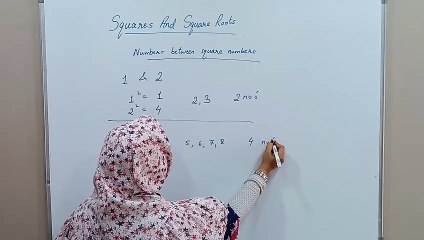 Squares And Square Roots
Numbers between square numbers
1 & 2
1² = 1 2, 3 2 nos
2² = 4
5, 6, 7, 8 4 n